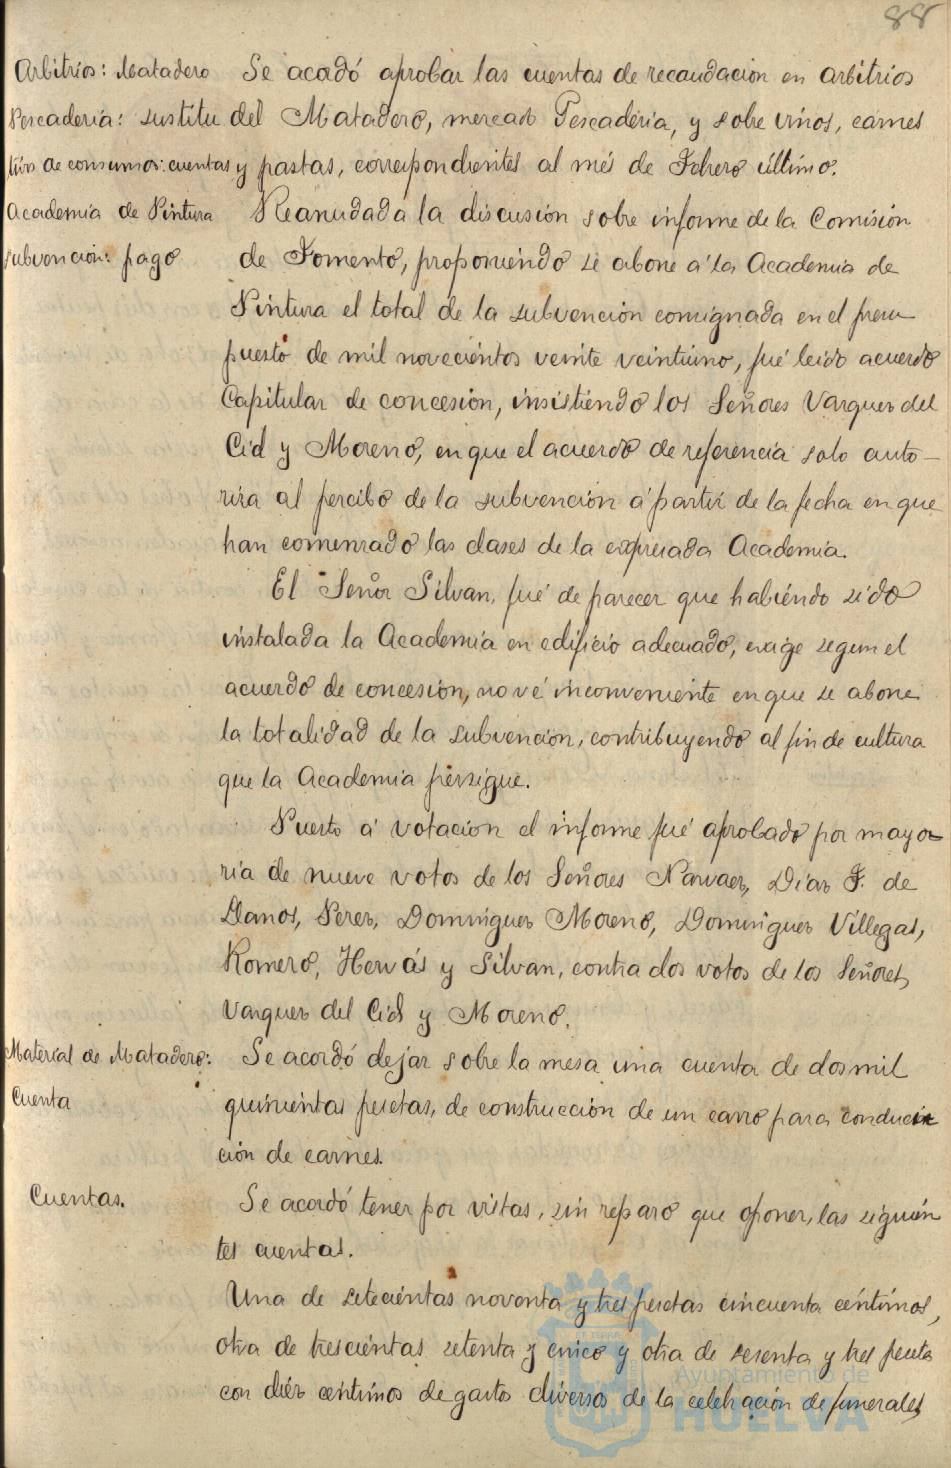 88
Arbitrios: Matadero
Pescadería: sustitu
tivos de consumos: cuentas
Se acordó aprobar las cuentas de recaudación en arbitrios
del Matadero, mercado Pescadería, y sobre vinos, carnes
y pastas, correspondientes al més de Febrero último.
Academia de Pintura
subvención: pago
Reanudada la discusión sobre informe de la Comisión
de Fomento, proponiendo se abone á la Academia de
Pintura el total de la subvención consignada en el presu
puesto de mil novecientos veinte veintiuno, fué leido acuerdo
Capitular de concesión, insistiendo los Señores Vazquez del
Cid y Moreno, en que el acuerdo de referencia solo auto-
riza al percibo de la subvención á partir de la fecha en que
han comenzado las clases de la expresada Academia.
El Señor Silvan, fué de parecer que habiendo sido
instalada la Academia en edificio adecuado, exige segun el
acuerdo de concesión, no vé inconveniente en que se abone
la totalidad de la subvención, contribuyendo al fin de cultura
que la Academia persigue.
Puesto á votación el informe fué aprobado por mayo-
ría de nueve votos de los Señores Narvaez, Diaz F. de
Llanos, Perez, Dominguez Moreno, Dominguez Villegas,
Romero, Hervás y Silvan, contra dos votos de los Señores
Vazquez del Cid y Moreno.
Material de Matadero:
Cuenta
Se acordó dejar sobre la mesa una cuenta de dos mil
quinientas pesetas, de construcción de un carro para conduc
ción de carnes.
Cuentas.
Se acordó tener por vistas, sin reparo que oponer, las siguien
tes cuentas.
Una de setecientas noventa y tres pesetas cincuenta céntimos,
otra de trescientas setenta y cinco y otra de sesenta y tres pesetas
con diéz céntimos de gastos diversos de la celebración de funerales
Ayuntamiento de
HUELVA